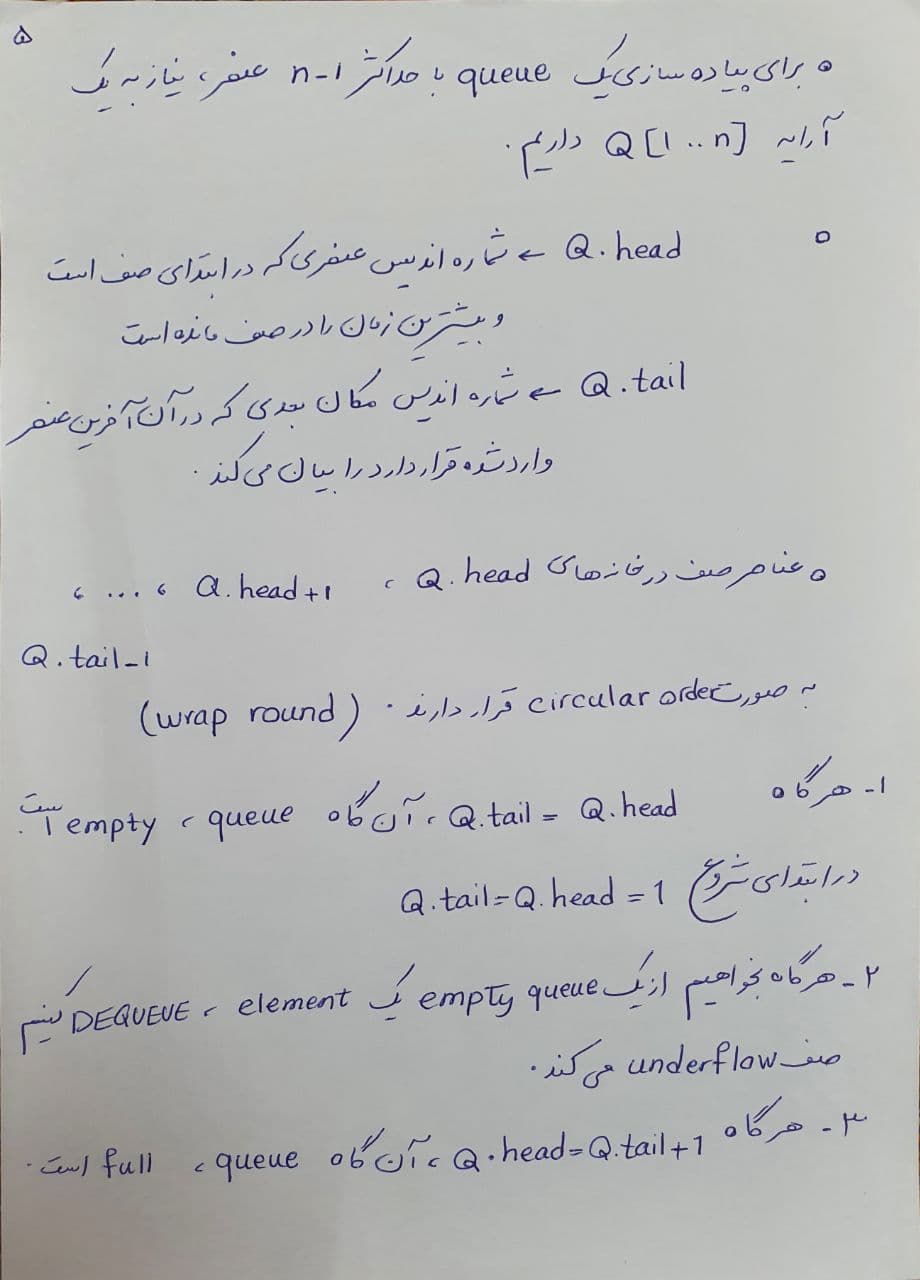 ۵
o برای پیاده سازی یک queue با حداکثر n-1 عنصر، نیاز به یک
آرایه Q[1..n] داریم.
o Q.head ← شماره اندیس عنصری که در ابتدای صف است
و بیشترین زمان را در صف مانده است
Q.tail ← شماره اندیس مکان بعدی که در آن آخرین عنصر
وارد شده قرار دارد را بیان می‌کند.
o عناصر صف در خانه‌های Q.head ، Q.head+1 ، ... ،
Q.tail-1
به صورت circular order قرار دارند. (wrap round)
۱- هرگاه Q.tail = Q.head ، آن گاه queue ، empty است.
در ابتدای شروع Q.tail=Q.head=1
۲- هرگاه بخواهیم از یک empty queue یک element ، DEQUEUE کنیم
صف underflow می‌کند.
۳- هرگاه Q.head=Q.tail+1 ، آن گاه queue ، full است.